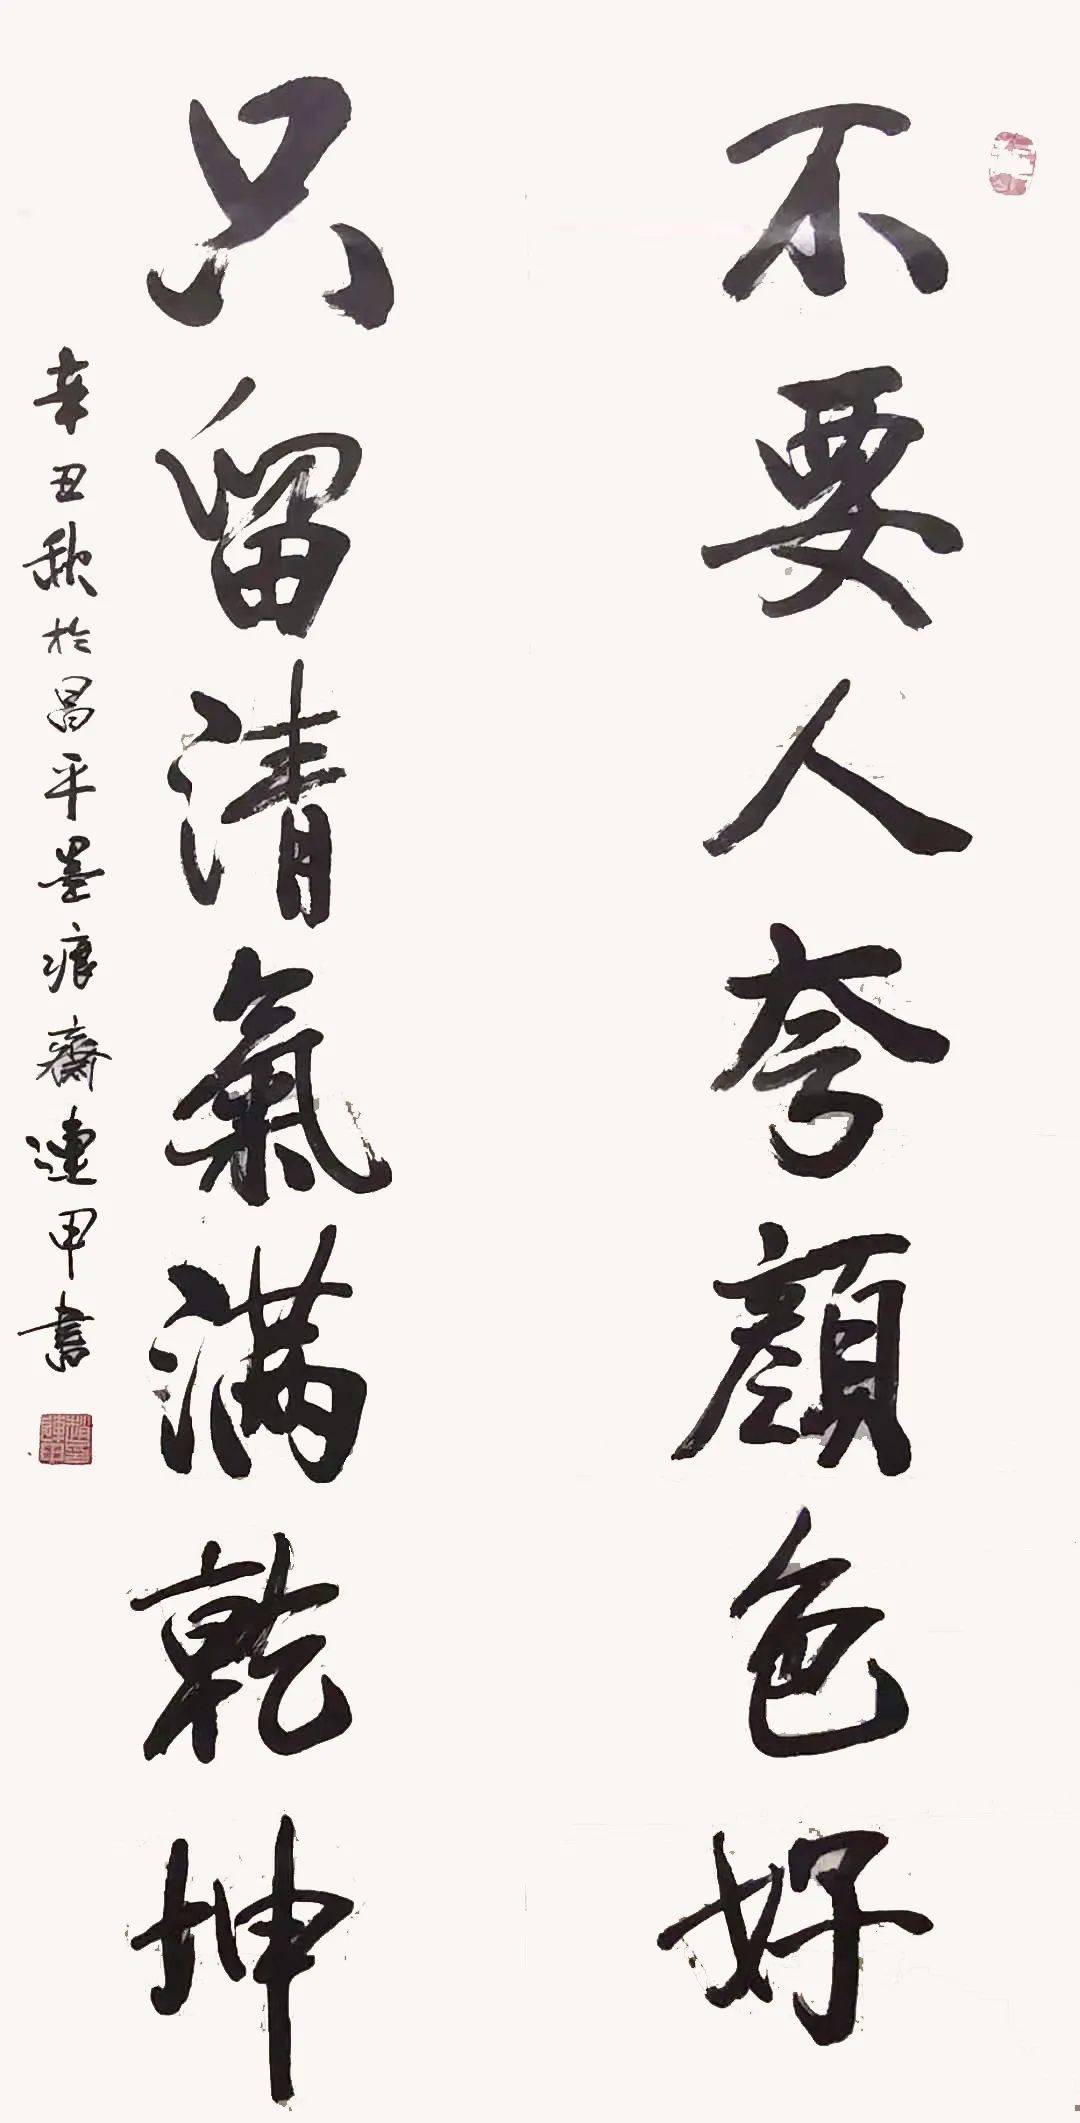 不要人夸顔色好
只留清氣满乾坤
辛丑秋於昌平墨痕齋連甲書